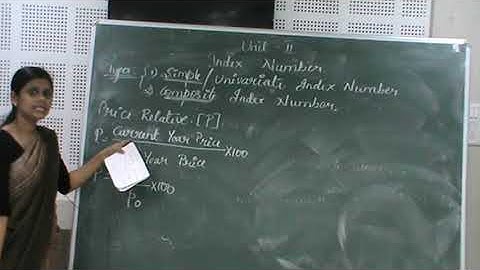 Unit - II
Index Number
Types: 1) Simple / Univariate Index Number
2) Composite Index Number.
Price Relative [P]
P = Current Year Price ×100
Year Price
×100
P0